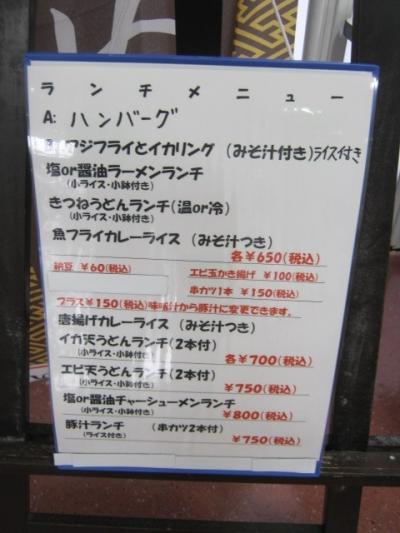 ランチメニュー
A: ハンバーグ
アジフライとイカリング (みそ汁付き)ライス付き
塩or醤油ラーメンランチ
(小ライス・小鉢付き)
きつねうどんランチ(温or冷)
(小ライス・小鉢付き)
魚フライカレーライス (みそ汁つき)
各￥650(税込)
納豆 ￥60(税込)
エビ玉かき揚げ ￥100(税込)
串カツ1本 ￥150(税込)
プラス￥150(税込)味噌汁から豚汁に変更できます。
唐揚げカレーライス (みそ汁つき)
イカ天うどんランチ(2本付)
(小ライス・小鉢付き)
各￥700(税込)
エビ天うどんランチ(2本付)
(小ライス・小鉢付き)
￥750(税込)
塩or醤油チャーシューメンランチ
(小ライス・小鉢付き)
￥800(税込)
豚汁ランチ (串カツ2本付)
(ライス付き)
￥750(税込)